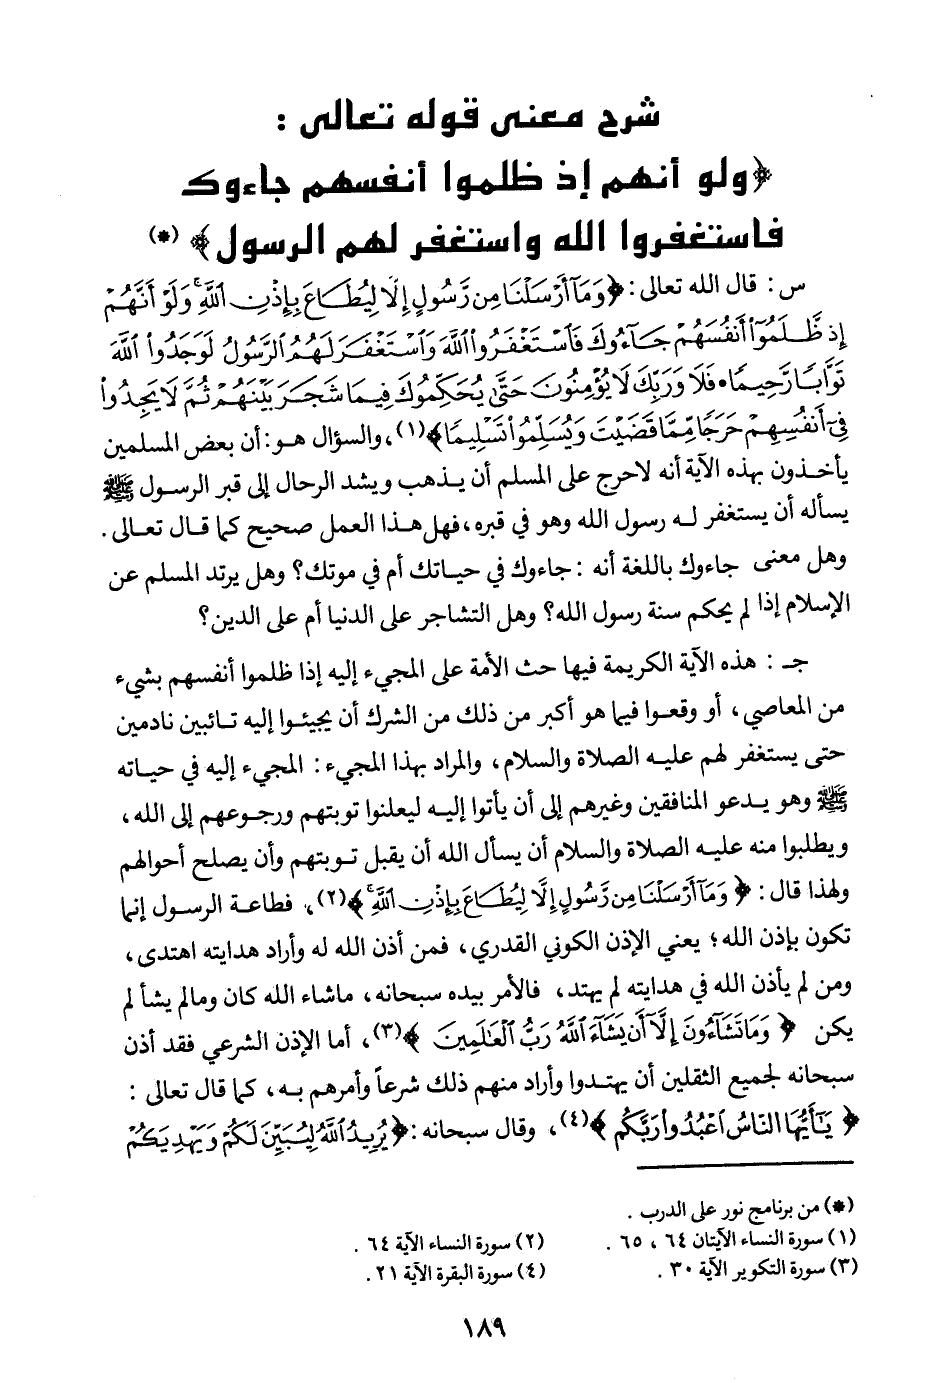 شرح معنى قوله تعالى :
﴿ولو أنهم إذ ظلموا أنفسهم جاءوك
فاستغفروا الله واستغفر لهم الرسول﴾ (*)
س : قال الله تعالى : ﴿وَمَآ أَرْسَلْنَا مِن رَّسُولٍ إِلَّا لِيُطَاعَ بِإِذْنِ ٱللَّهِ ۚ وَلَوْ أَنَّهُمْ
إِذ ظَّلَمُوٓا۟ أَنفُسَهُمْ جَآءُوكَ فَٱسْتَغْفَرُوا۟ ٱللَّهَ وَٱسْتَغْفَرَ لَهُمُ ٱلرَّسُولُ لَوَجَدُوا۟ ٱللَّهَ
تَوَّابًا رَّحِيمًا • فَلَا وَرَبِّكَ لَا يُؤْمِنُونَ حَتَّىٰ يُحَكِّمُوكَ فِيمَا شَجَرَ بَيْنَهُمْ ثُمَّ لَا يَجِدُوا۟
فِىٓ أَنفُسِهِمْ حَرَجًا مِّمَّا قَضَيْتَ وَيُسَلِّمُوا۟ تَسْلِيمًا﴾(١)، والسؤال هو : أن بعض المسلمين
يأخذون بهذه الآية أنه لاحرج على المسلم أن يذهب ويشد الرحال إلى قبر الرسول ﷺ
يسأله أن يستغفر له رسول الله وهو في قبره، فهل هذا العمل صحيح كما قال تعالى .
وهل معنى جاءوك باللغة أنه : جاءوك في حياتك أم في موتك؟ وهل يرتد المسلم عن
الإسلام إذا لم يحكم سنة رسول الله؟ وهل التشاجر على الدنيا أم على الدين؟
جـ : هذه الآية الكريمة فيها حث الأمة على المجيء إليه إذا ظلموا أنفسهم بشيء
من المعاصي، أو وقعوا فيما هو أكبر من ذلك من الشرك أن يجيئوا إليه تائبين نادمين
حتى يستغفر لهم عليه الصلاة والسلام، والمراد بهذا المجيء : المجيء إليه في حياته
ﷺ وهو يدعو المنافقين وغيرهم إلى أن يأتوا إليه ليعلنوا توبتهم ورجوعهم إلى الله،
ويطلبوا منه عليه الصلاة والسلام أن يسأل الله أن يقبل توبتهم وأن يصلح أحوالهم
ولهذا قال : ﴿ وَمَآ أَرْسَلْنَا مِن رَّسُولٍ إِلَّا لِيُطَاعَ بِإِذْنِ ٱللَّهِ ۚ ﴾(٢)، فطاعة الرسول إنما
تكون بإذن الله؛ يعني الإذن الكوني القدري، فمن أذن الله له وأراد هدايته اهتدى،
ومن لم يأذن الله في هدايته لم يهتد، فالأمر بيده سبحانه، ماشاء الله كان ومالم يشأ لم
يكن ﴿ وَمَا تَشَآءُونَ إِلَّآ أَن يَشَآءَ ٱللَّهُ رَبُّ ٱلْعَٰلَمِينَ ﴾(٣)، أما الإذن الشرعي فقد أذن
سبحانه لجميع الثقلين أن يهتدوا وأراد منهم ذلك شرعاً وأمرهم به، كما قال تعالى :
﴿ يَٰٓأَيُّهَا ٱلنَّاسُ ٱعْبُدُوا۟ رَبَّكُمُ ﴾(٤)، وقال سبحانه : ﴿يُرِيدُ ٱللَّهُ لِيُبَيِّنَ لَكُمْ وَيَهْدِيَكُمْ
(*) من برنامج نور على الدرب .
(١) سورة النساء الآيتان ٦٤ ، ٦٥ . (٢) سورة النساء الآية ٦٤ .
(٣) سورة التكوير الآية ٣٠ . (٤) سورة البقرة الآية ٢١ .
١٨٩